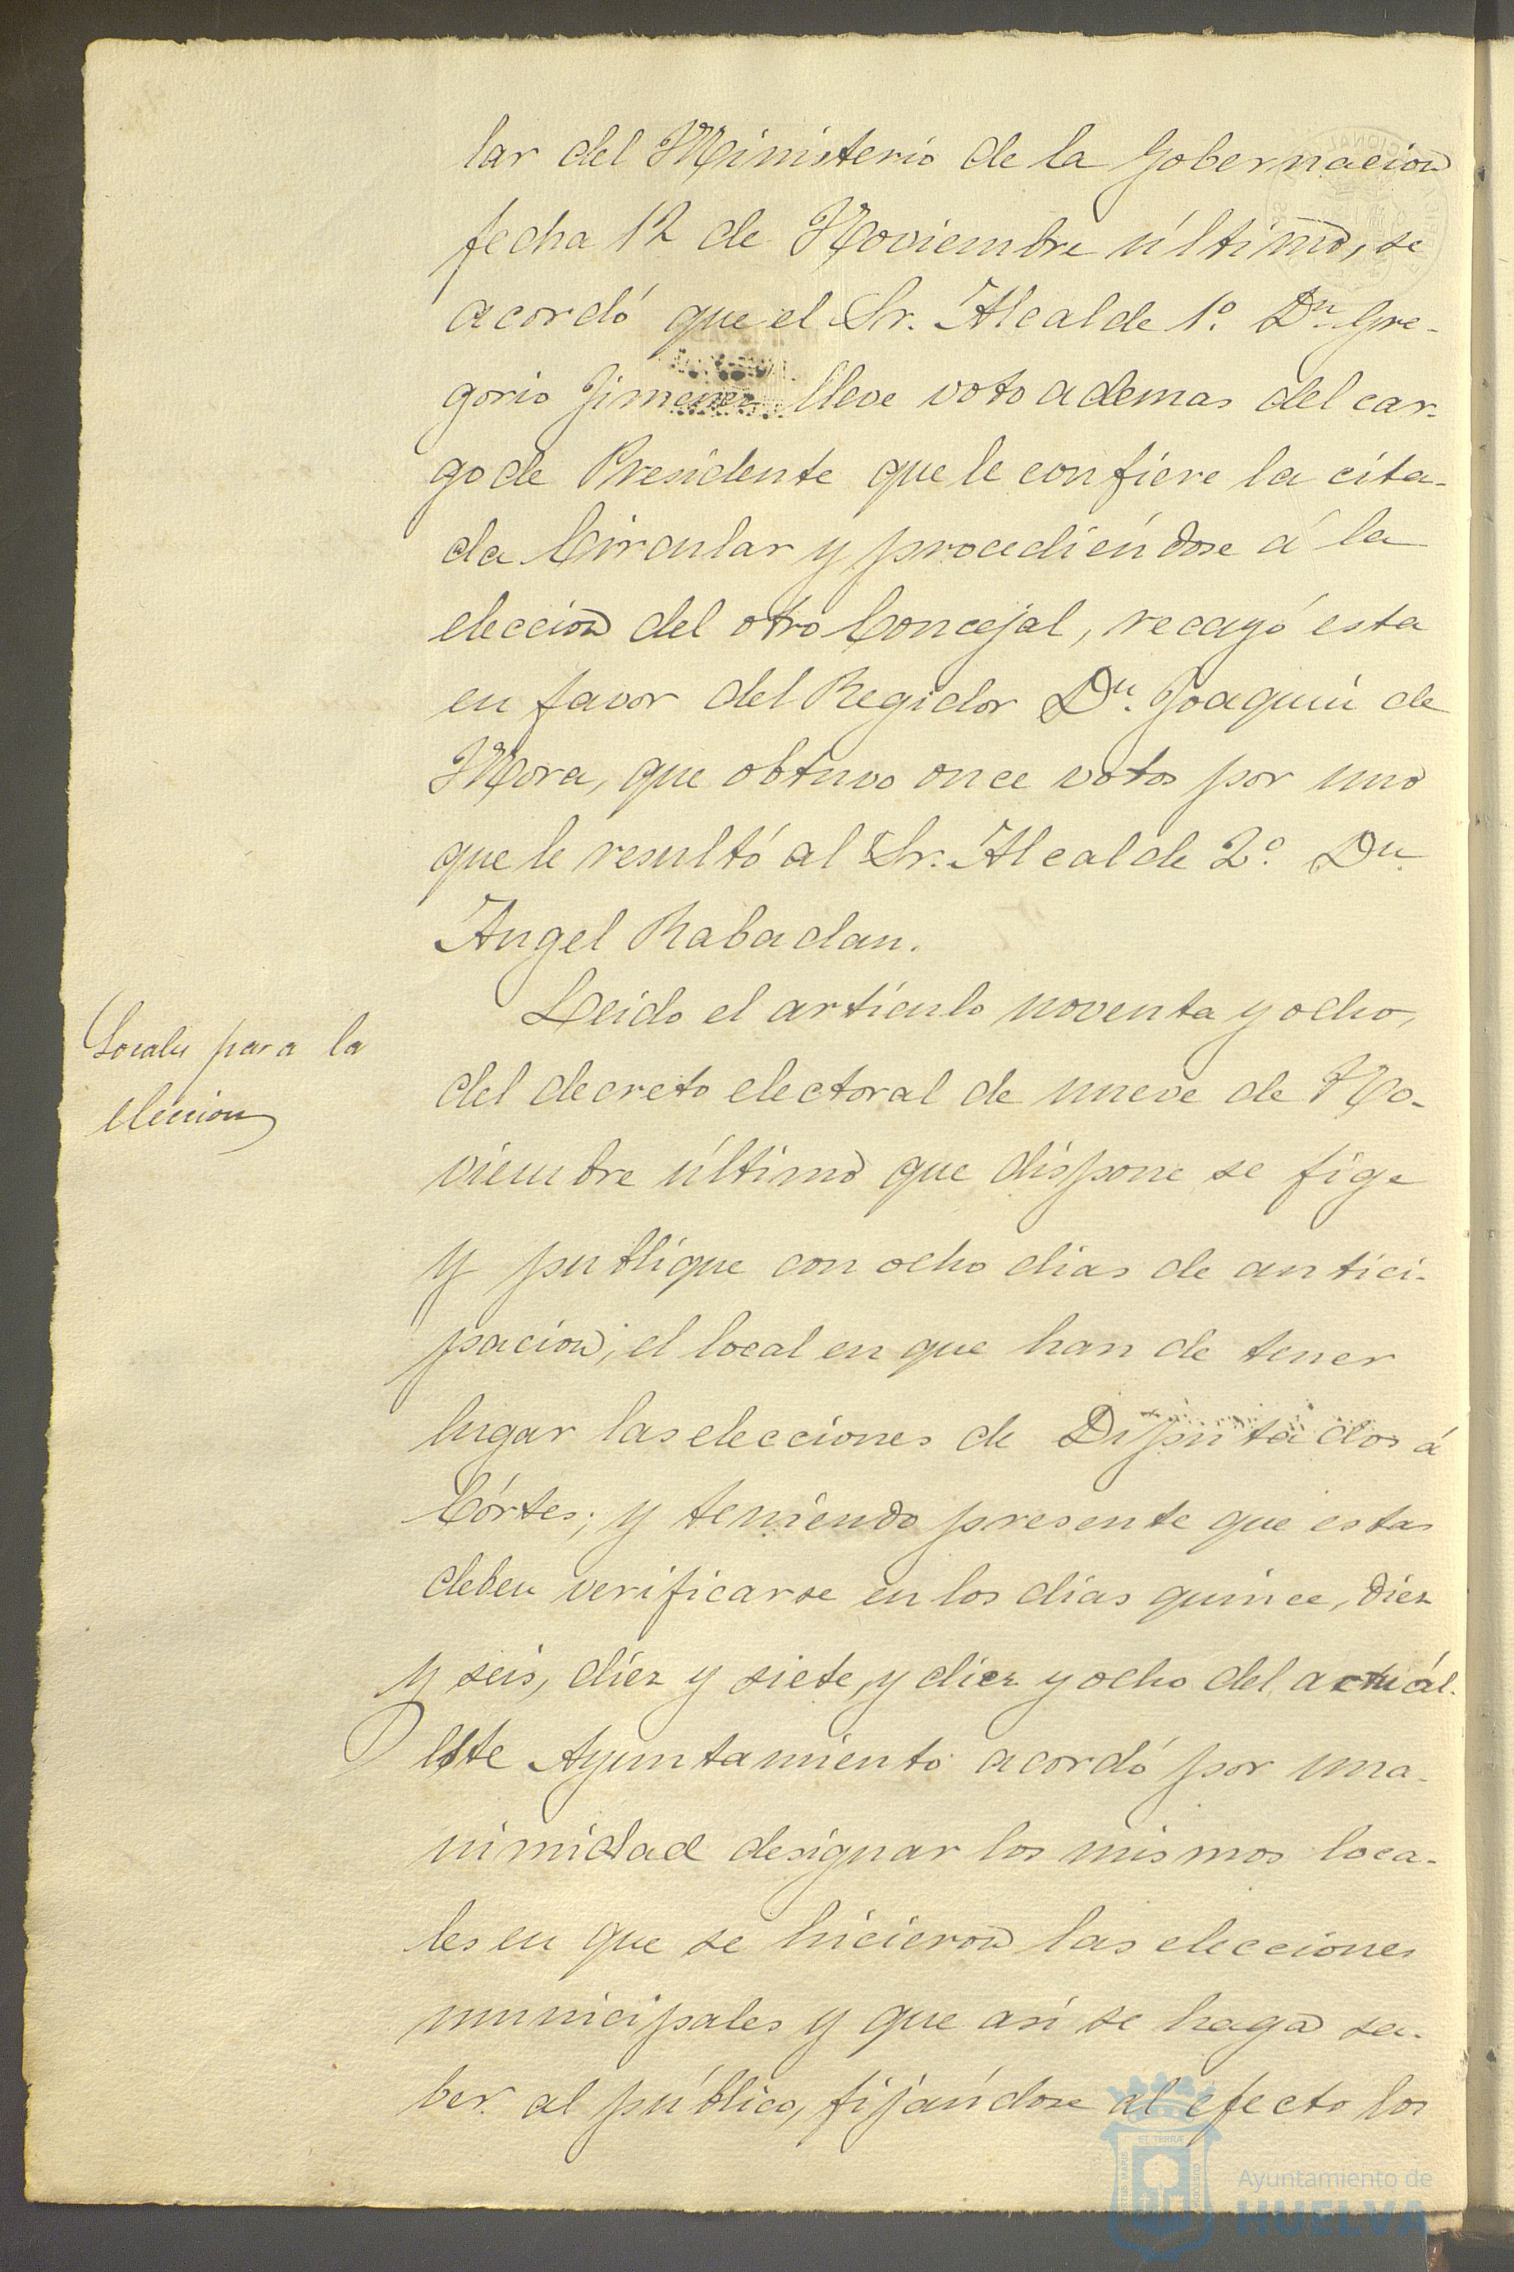 lar del Ministerio de la Gobernacion
fecha 12 de Noviembre último, se
acordó que el Sr. Alcalde 1º. Dn. Gre-
gorio Jimenez lleve voto ademas del car-
go de Presidente que le confiere la cita-
da Circular y procediéndose á la
eleccion del otro Concejal, recayó esta
en favor del Regidor Dn. Joaquin de
Mora, que obtuvo once votos por uno
que le resultó al Sr. Alcalde 2º. Dn.
Angel Rabadan.
Locales para la
eleccion
Leido el artículo noventa y ocho,
del decreto electoral de nueve de No-
viembre último que dispone se fige
y publique con ocho dias de antici-
pacion, el local en que han de tener
lugar las elecciones de Diputados á
Córtes; y teniendo presente que estas
deben verificarse en los dias quince, diez
y seis, diez y siete, y diez y ocho del actuál.
Este Ayuntamiento acordó por una-
nimidad designar los mismos loca-
les en que se hicieron las elecciones
municipales y que así se haga sa-
ber al público, fijándose al efecto los
Ayuntamiento de
HUELVA